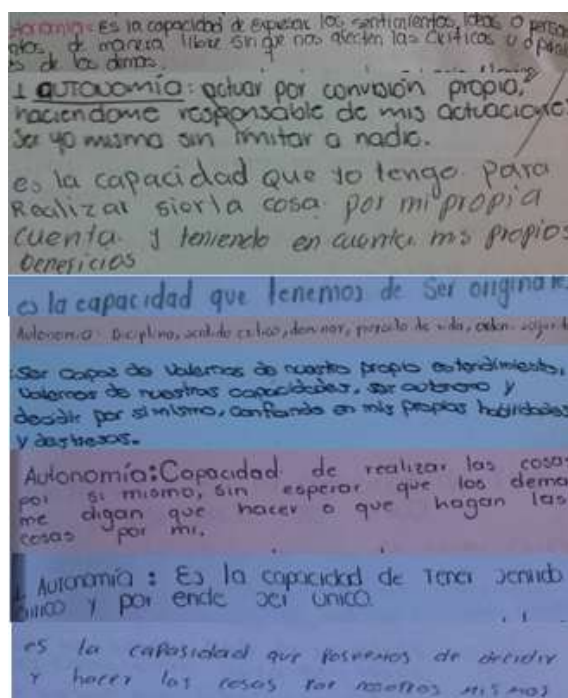 Es la capacidad de expresar los sentimientos, ideas o
de manera libre sin que nos afecten las criticas u
de los demas.
1 AUTONOMÍA: actuar por convisión propia,
haciendome responsable de mis actuaciones
Ser yo misma sin imitar a nadie.
es la capacidad que yo tengo para
Realizar sierta cosa por mi propia
cuenta y teniendo en cuenta mis propios
beneficios
es la capacidad que tenemos de Ser originale
Autonomia: Diciplina, de vida, orden
Ser capaz de Valernos de nuestro propio entendimiento,
Valernos de nuestras capacidades, ser autonomo y
decidir por si mismo, confiando en mis propias habilidades
y destresas.
Autonomía: Capacidad de realizar las cosas
por si mismo, sin esperar que los dema
me digan que hacer o que hagan las
cosas por mi.
Autonomía: Es la capacidad de tener sentido
y por ende ser unico.
es la capasidad que poseemos de decidir
y hacer las cosas por nosotros mismos